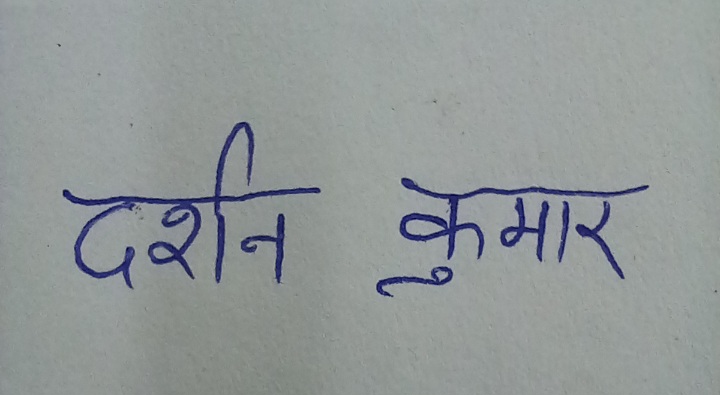 दर्शन कुमार